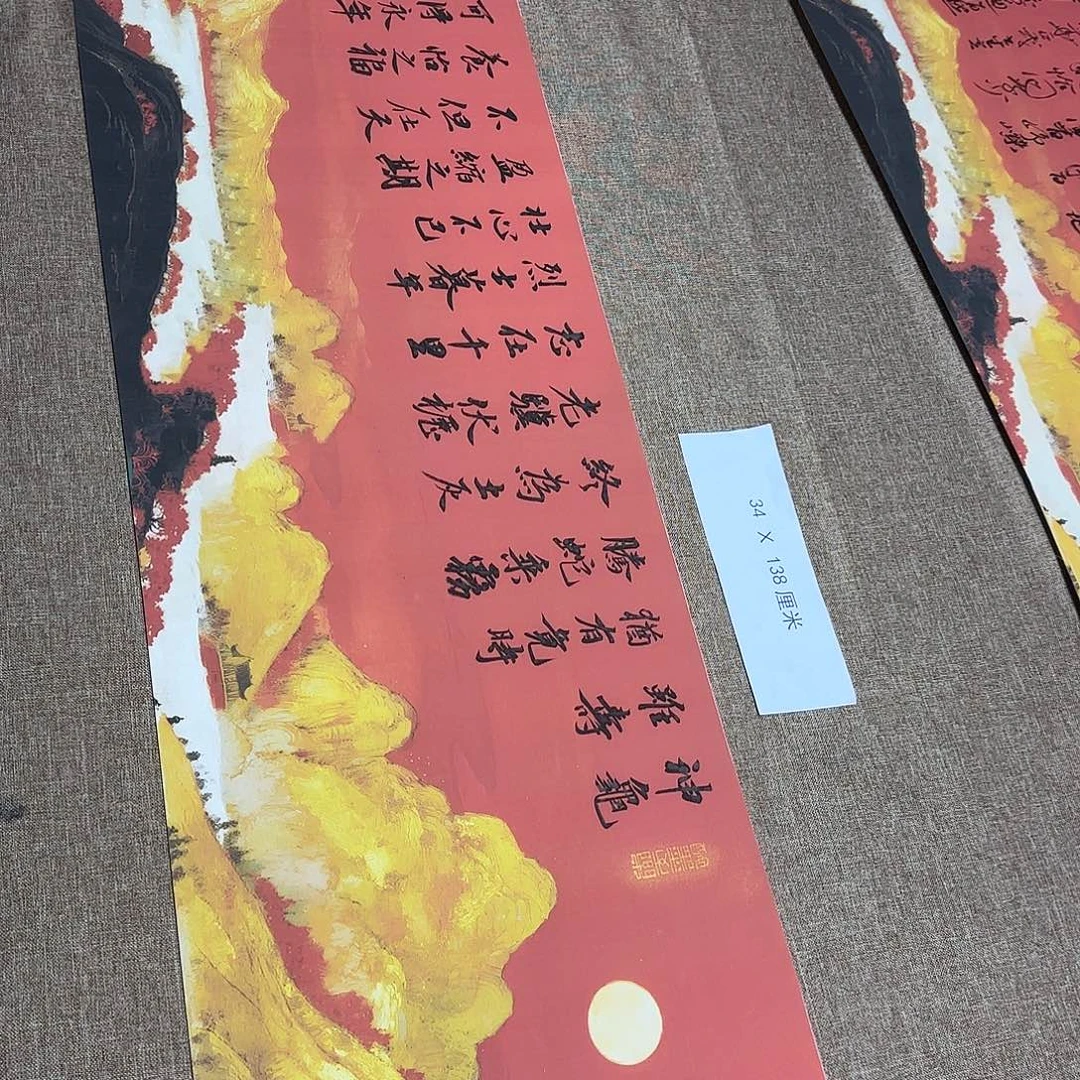 神龜
雖壽
猶有竟時
騰蛇乘霧
終為土灰
老驥伏櫪
志在千里
烈士暮年
壯心不已
盈縮之期
不但在天
養怡之福
可得永年
34 X 138厘米